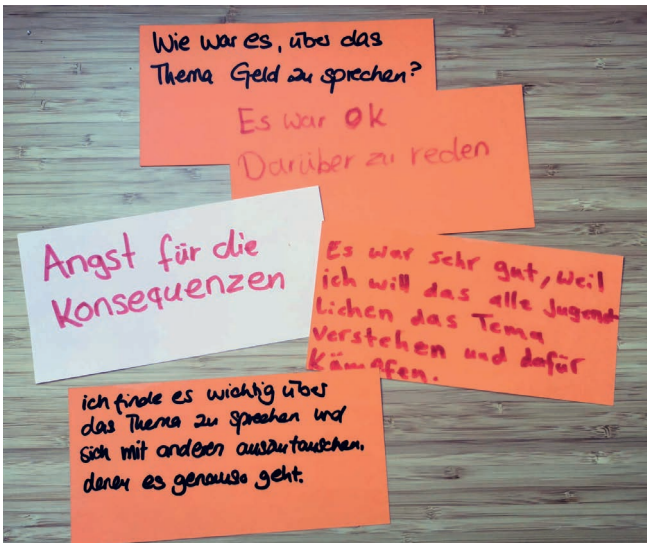 Wie war es, über das
Thema Geld zu sprechen?
Es war ok
Darüber zu reden
Angst für die
Konsequenzen
Es war sehr gut, weil
ich will das alle Jugend-
lichen das Tema
verstehen und dafür
Kämpfen.
ich finde es wichtig über
das Thema zu sprechen und
sich mit anderen auszutauschen,
denen es genauso geht.